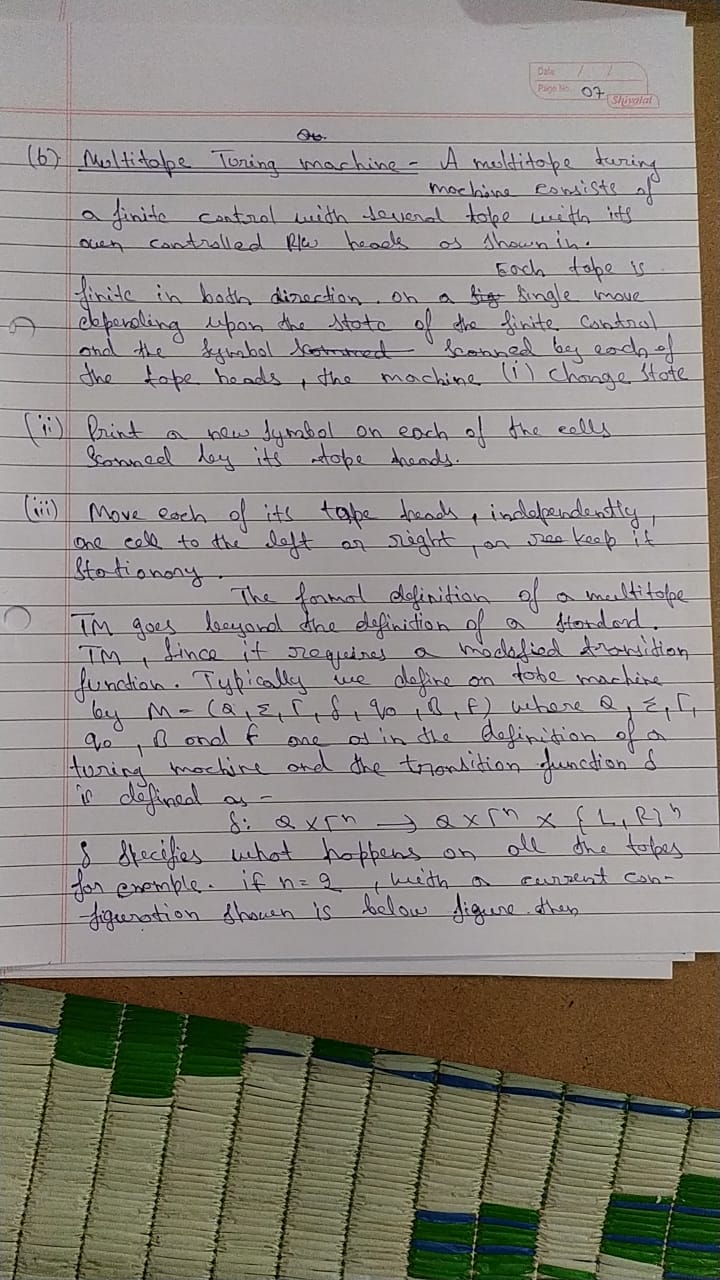 Date / /
Page No. 07
Shivalal
(b) Multitape Turing machine - A multitape turing
machine consists of
a finite control with several tape with its
own controlled R/w heads as shown in.
Each tape is
finite in both direction. on a single move
depending upon the state of the finite control
and the symbol scanned by each of
the tape heads, the machine (i) change state
(ii) Print a new symbol on each of the cells
scanned by its tape heads.
(iii) Move each of its tape heads, independently,
one cell to the left or right, or keep it
stationary.
The formal definition of a multitape
TM goes beyond the definition of a standard.
TM, since it requires a modified transition
function. Typically we define on tobe machine
by M = (Q, Σ, Γ, δ, q0, B, F) where Q, Σ, Γ,
q0, B and F are as in the definition of a
turing machine and the transition function δ
is defined as -
δ: Q × Γn → Q × Γn × {L, R}n
δ specifies what happens on all the tapes
for exemple. if n = 2, with a current con-
-figuration shown is below figure. then